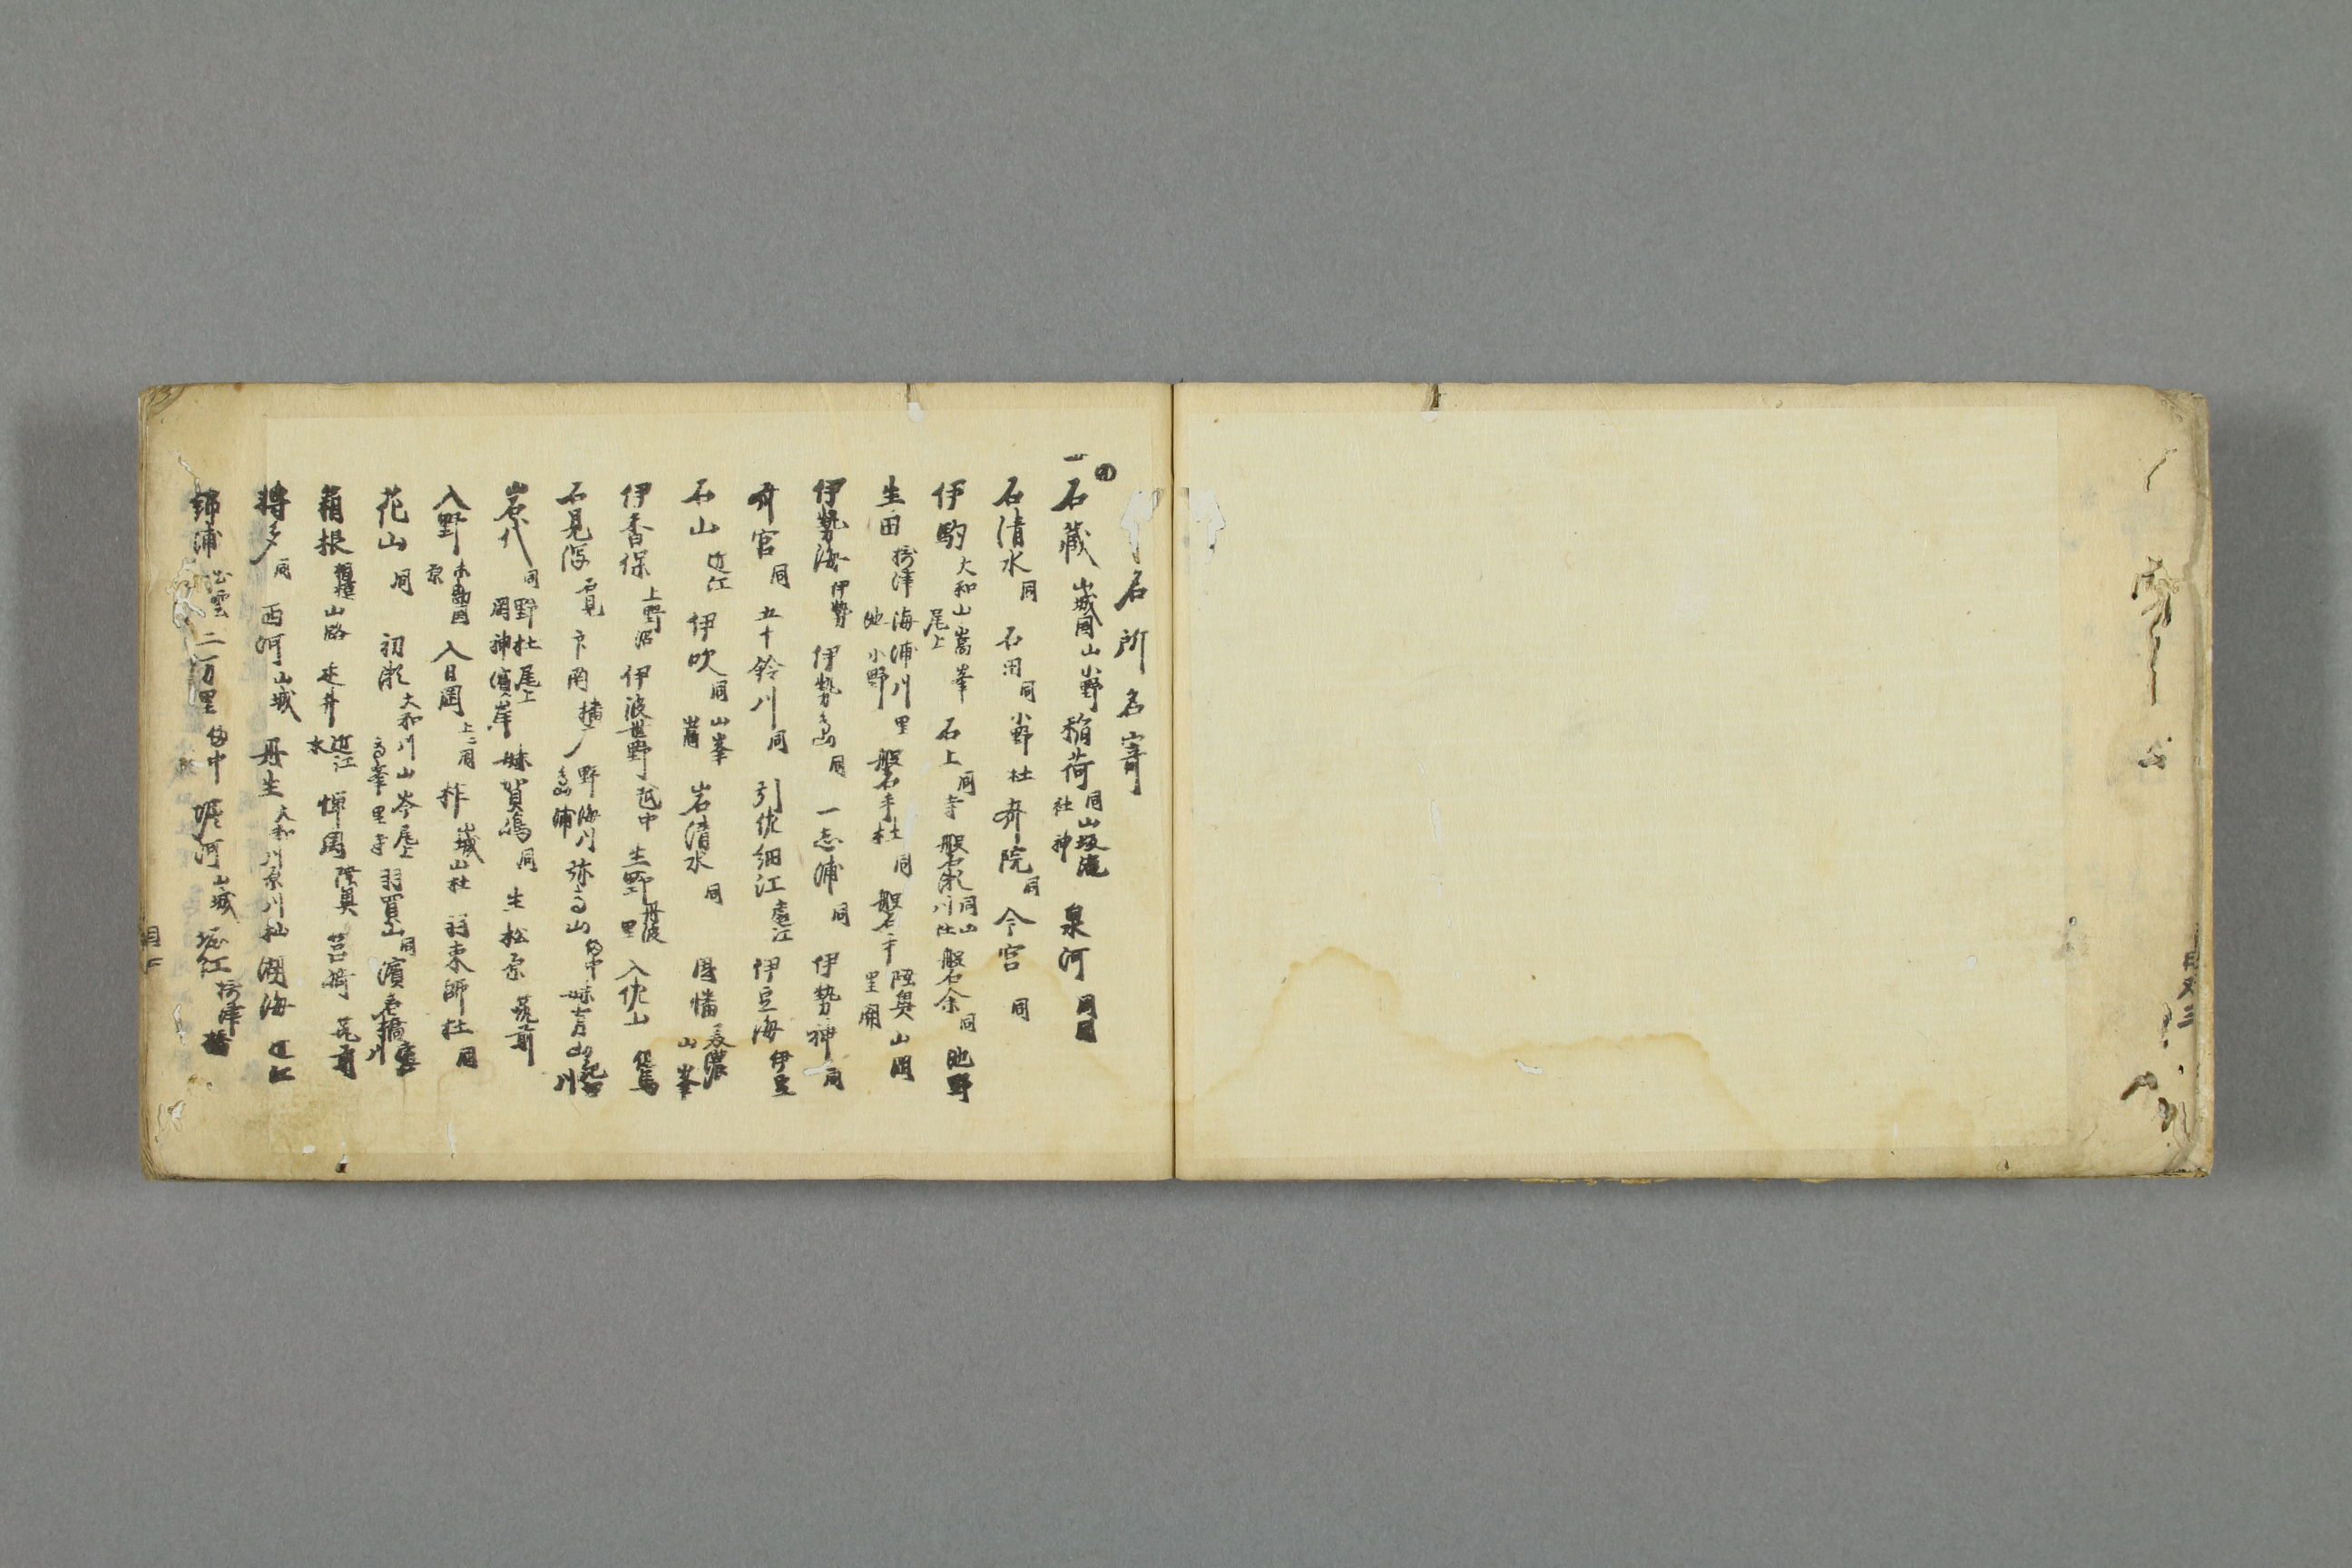 名所名寄
一石蔵 山城国山小野 稲荷 同山坂滝社神 泉河 同国
石清水 同 石田 同小野杜 斎院 同 今宮 同
伊駒 大和山嵩峯尾上 石上 同寺 磐瀬 同山川杜 磐余 同池野
生田 摂津海浦川里池小野 磐手杜 同 磐手 陸奥山岡里関
伊勢海 伊勢 伊勢島 同 一志浦 同 伊勢神 同
斎宮 同 五十鈴川 同 引佐細江 遠江 伊豆海 伊豆
石山 近江 伊吹 同山峯嵩 岩清水 同 因幡 美濃山峯
伊香保 上野沼 伊波世野 越中 生野 丹波里 入佐山 但馬
石見潟 石見 印南 播广野海川島浦 弥高山 備中 妹背山 川
岩代 同野杜尾上岡神濱岸 妹賀島 同 生松原 筑前
入野 未勘国原 入日岡 上二同 柞 山城山杜 羽束師杜 同
花山 同 初瀬 大和川山岑尾上高峯里寺 羽買山 同 濱名橋 川
箱根 相模山路 走井 近江水 憚関 陸奥 筥崎 筑前
西河 山城 丹生 大和川原川杣 湖海 近江
錦浦 出雲 二万里 備中 堀河 山城 堀江 摂津橋